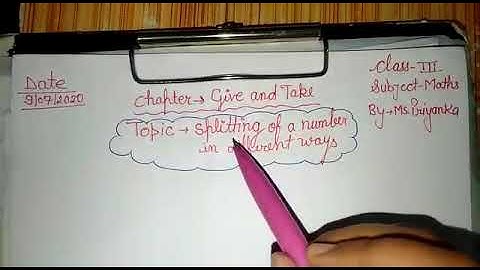 Date
9/07/2020
Class-III
Subject-Maths
By→Ms. Priyanka
Chapter→ Give and Take
Topic → splitting of a number
in different ways